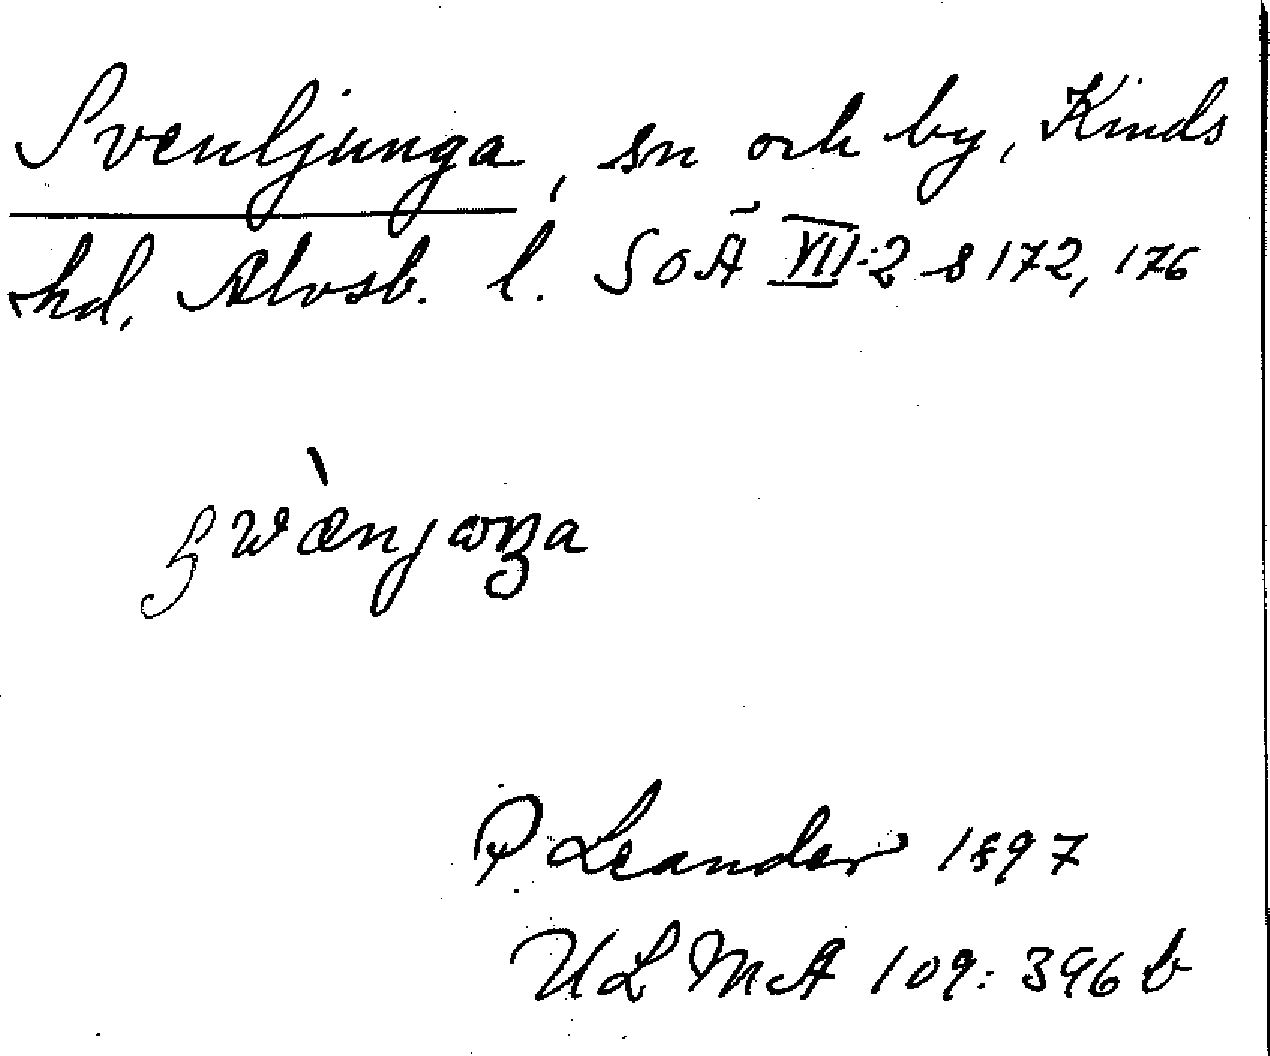 Svenljunga, sn och by, Kinds
hd, Älvsb. l. SOÄ VII:2 s 172, 176
swæ̀njωŋa
P. Leander 1897
ULMA 109:396 b